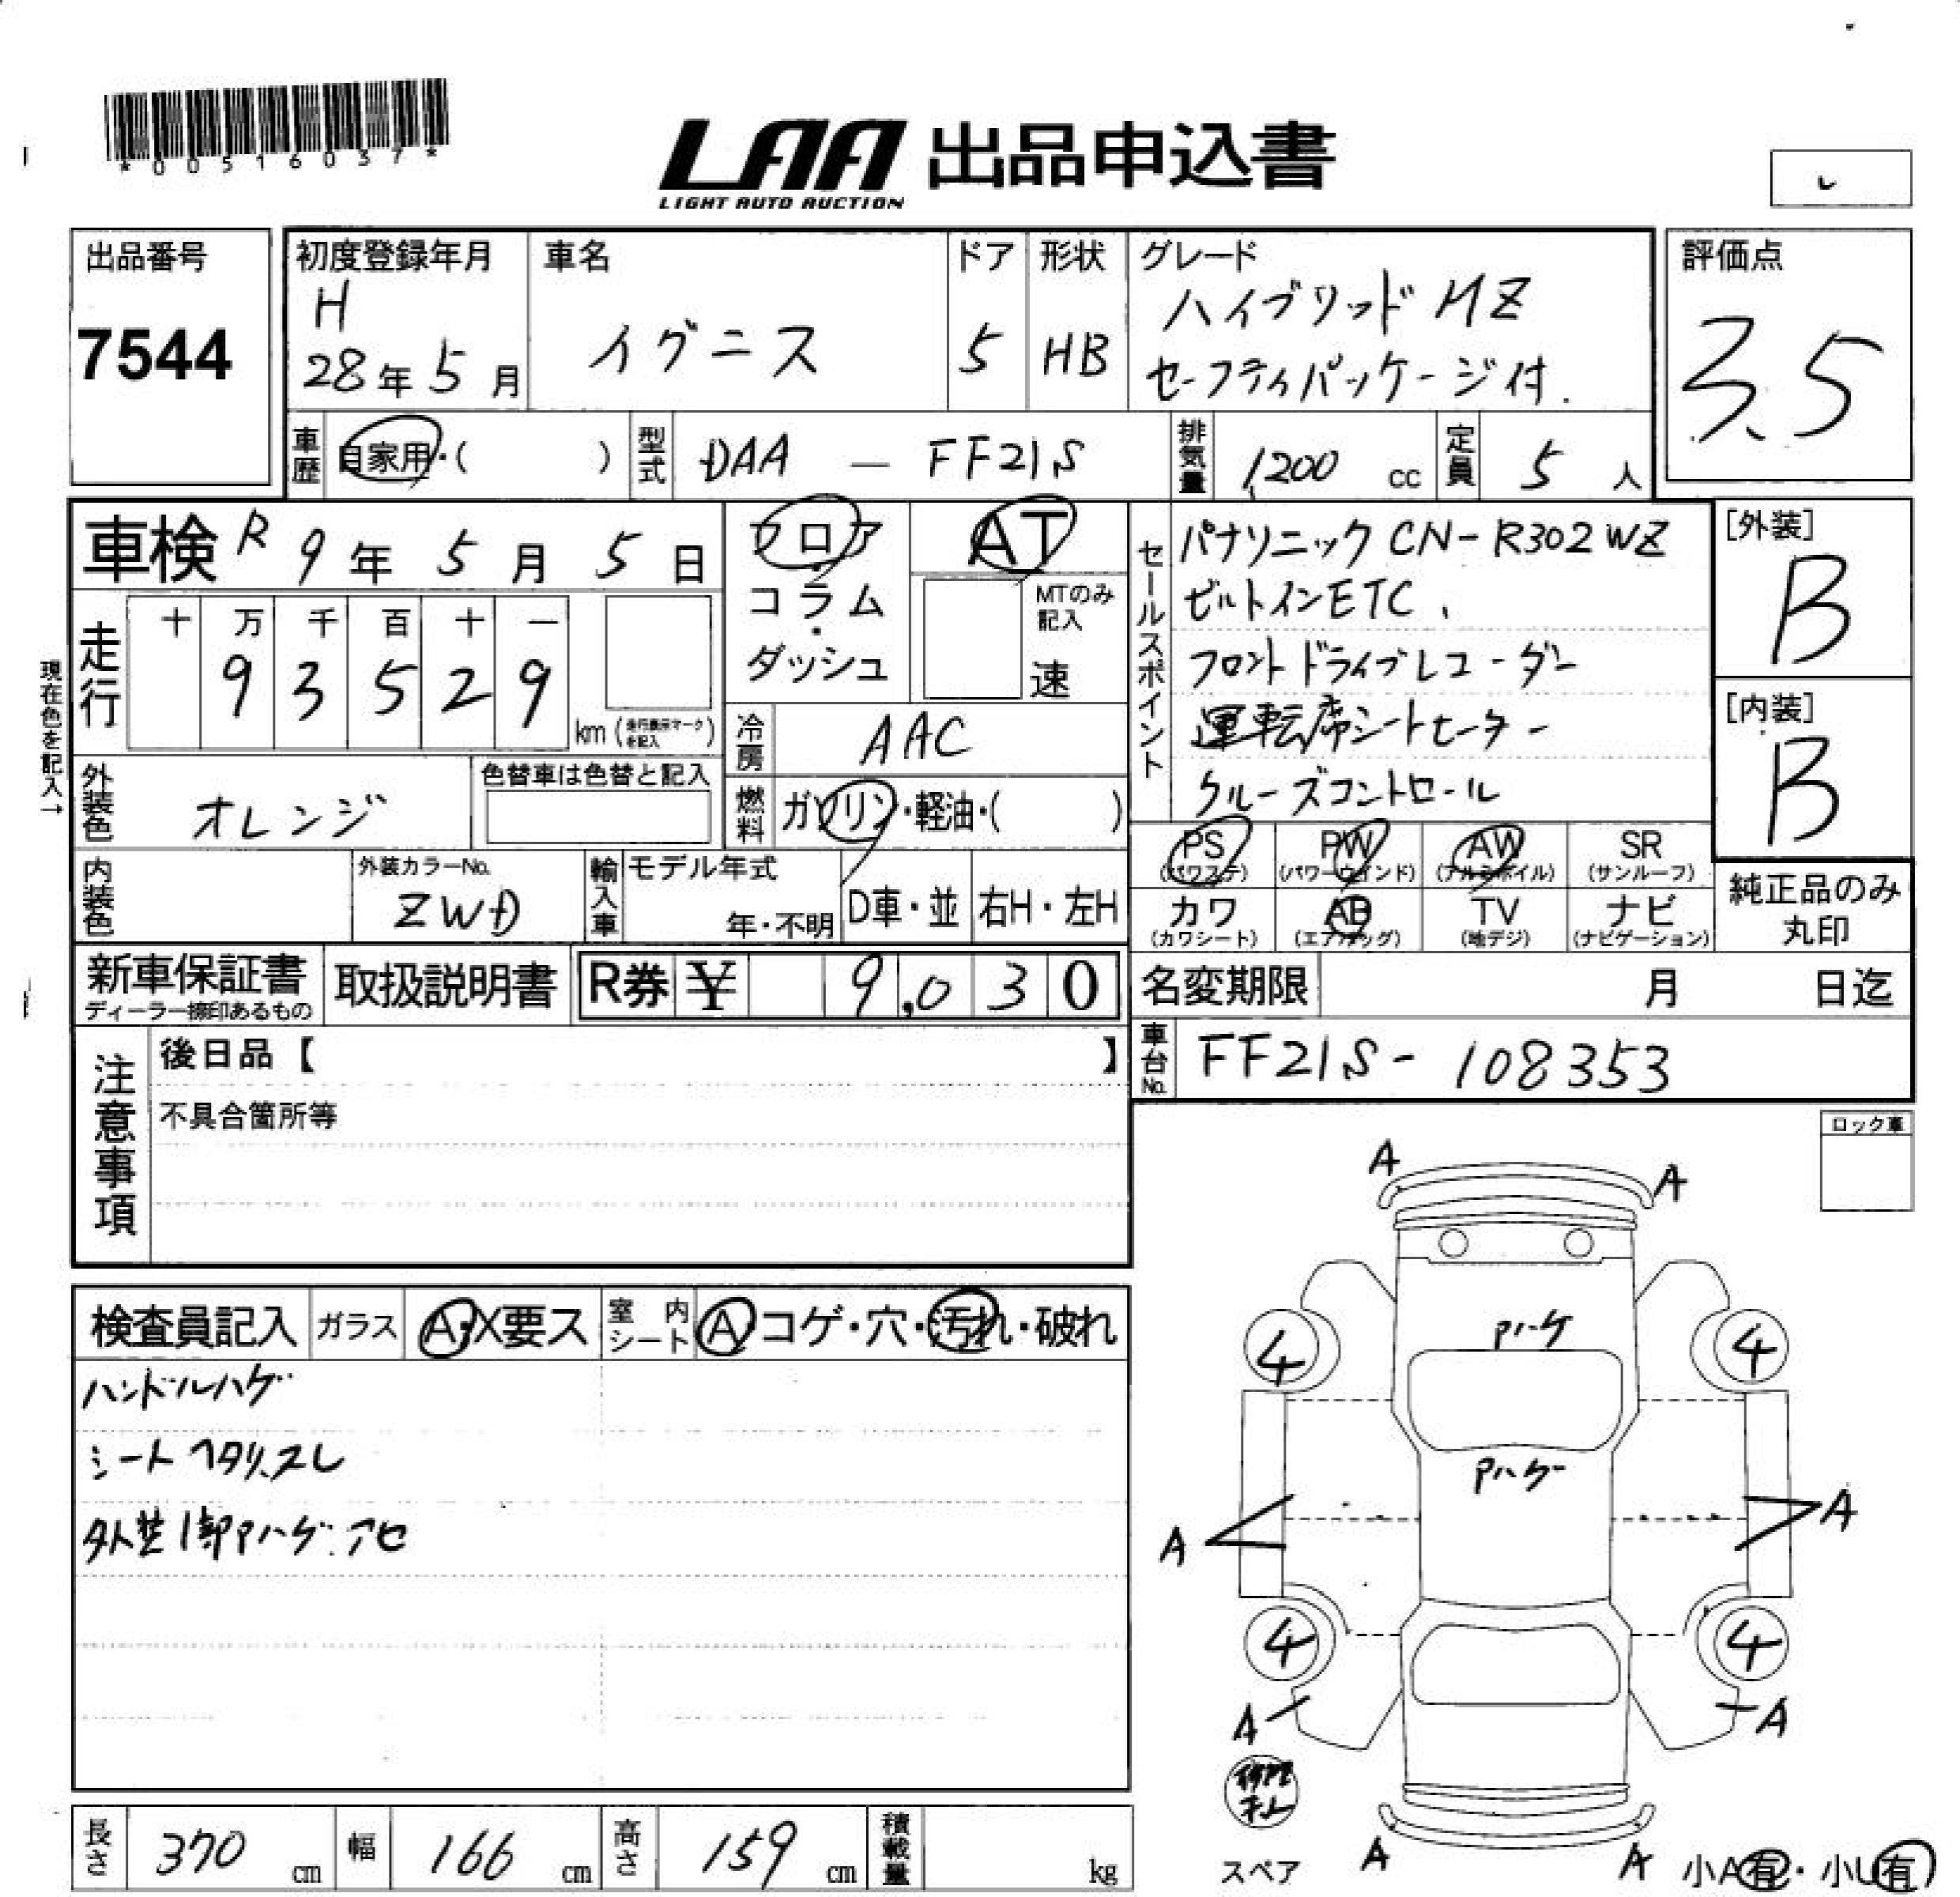 *00516037*
LAA 出品申込書
LIGHT AUTO AUCTION
出品番号
7544
初度登録年月
H
28年 5月
車名
イグニス
ドア
5
形状
HB
グレード
ハイブリッド MZ
セーフティパッケージ付.
評価点
3.5
車歴
自家用・( )
型式
DAA — FF21S
排気量
1,200 cc
定員
5 人
車検 R 9年 5月 5日
フロア・コラム・ダッシュ
AT
MTのみ記入
速
セールスポイント
パナソニック CN-R302WZ
ビルトインETC、
フロントドライブレコーダー
運転席シートヒーター
クルーズコントロール
[外装]
B
[内装]
B
現在色を記入→
走行
十 万 千 百 十 一
9 3 5 2 9
km (走行表示マークを記入)
冷房
AAC
外装色
オレンジ
色替車は色替と記入
燃料
ガソリン・軽油・( )
PS (パワステ)
PW (パワーウインド)
AW (アルミホイル)
SR (サンルーフ)
カワ (カワシート)
AB (エアバッグ)
TV (地デジ)
ナビ (ナビゲーション)
純正品のみ丸印
内装色
外装カラーNo.
ZWD
輸入車
モデル年式
年・不明
D車・並
右H・左H
新車保証書
ディーラー捺印あるもの
取扱説明書
R券 ¥ 9,030
名変期限 月 日迄
車台No.
FF21S- 108353
注意事項
後日品【 】
不具合箇所等
ロック車
検査員記入
ガラス
A・X要ス
室内シート
A・コゲ・穴・汚れ・破れ
ハンドルハゲ
シートヘタリ、スレ
外装1部Pハゲ.アセ
A A
Pハゲ
4 4
Pハゲ
A A
4 4
A A
A A
スペア
小A有・小U有
長さ 370 cm
幅 166 cm
高さ 159 cm
積載量 kg